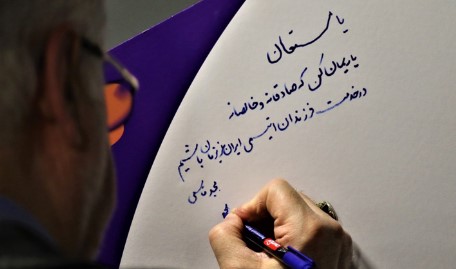 یا مستعان
یاریمان کن که صادقانه و خالصانه
در خدمت فرزندان اتیسمی ایران عزیزمان باشیم